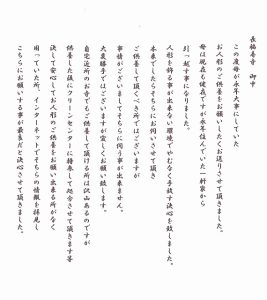 長福寿寺 御中
この度母が永年大事にしていた
お人形のご供養をお願いしたくお送りさせて頂きました。
母は現在も健在ですが永年住んでいた一軒家から
引っ越す事になりました。
人形を飾る事が出来ない環境でやむなく手放す決心を致しました。
本来でしたらそちらにお伺いさせて頂き
ご供養して頂くべき所ではございますが
事情がございましてそちらに伺う事が出来ません。
大変勝手ではございますが宜しくお願い致します。
自宅近所のお寺でもご供養して頂ける所は沢山あるのですが
供養した後にクリーンセンターに持参して処分させて頂きます等
決して安心してお人形のご供養をお願い出来る所がなく
困っていた所、インターネットでそちらの情報を拝見し
こちらにお願いする事が最善だと決心させて頂きました。